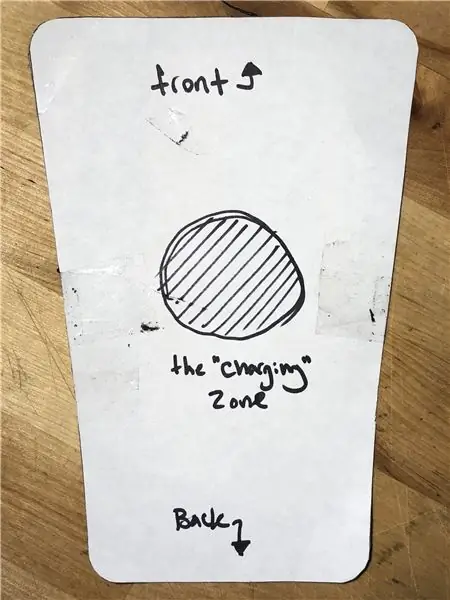 front
the "charging"
zone
Back